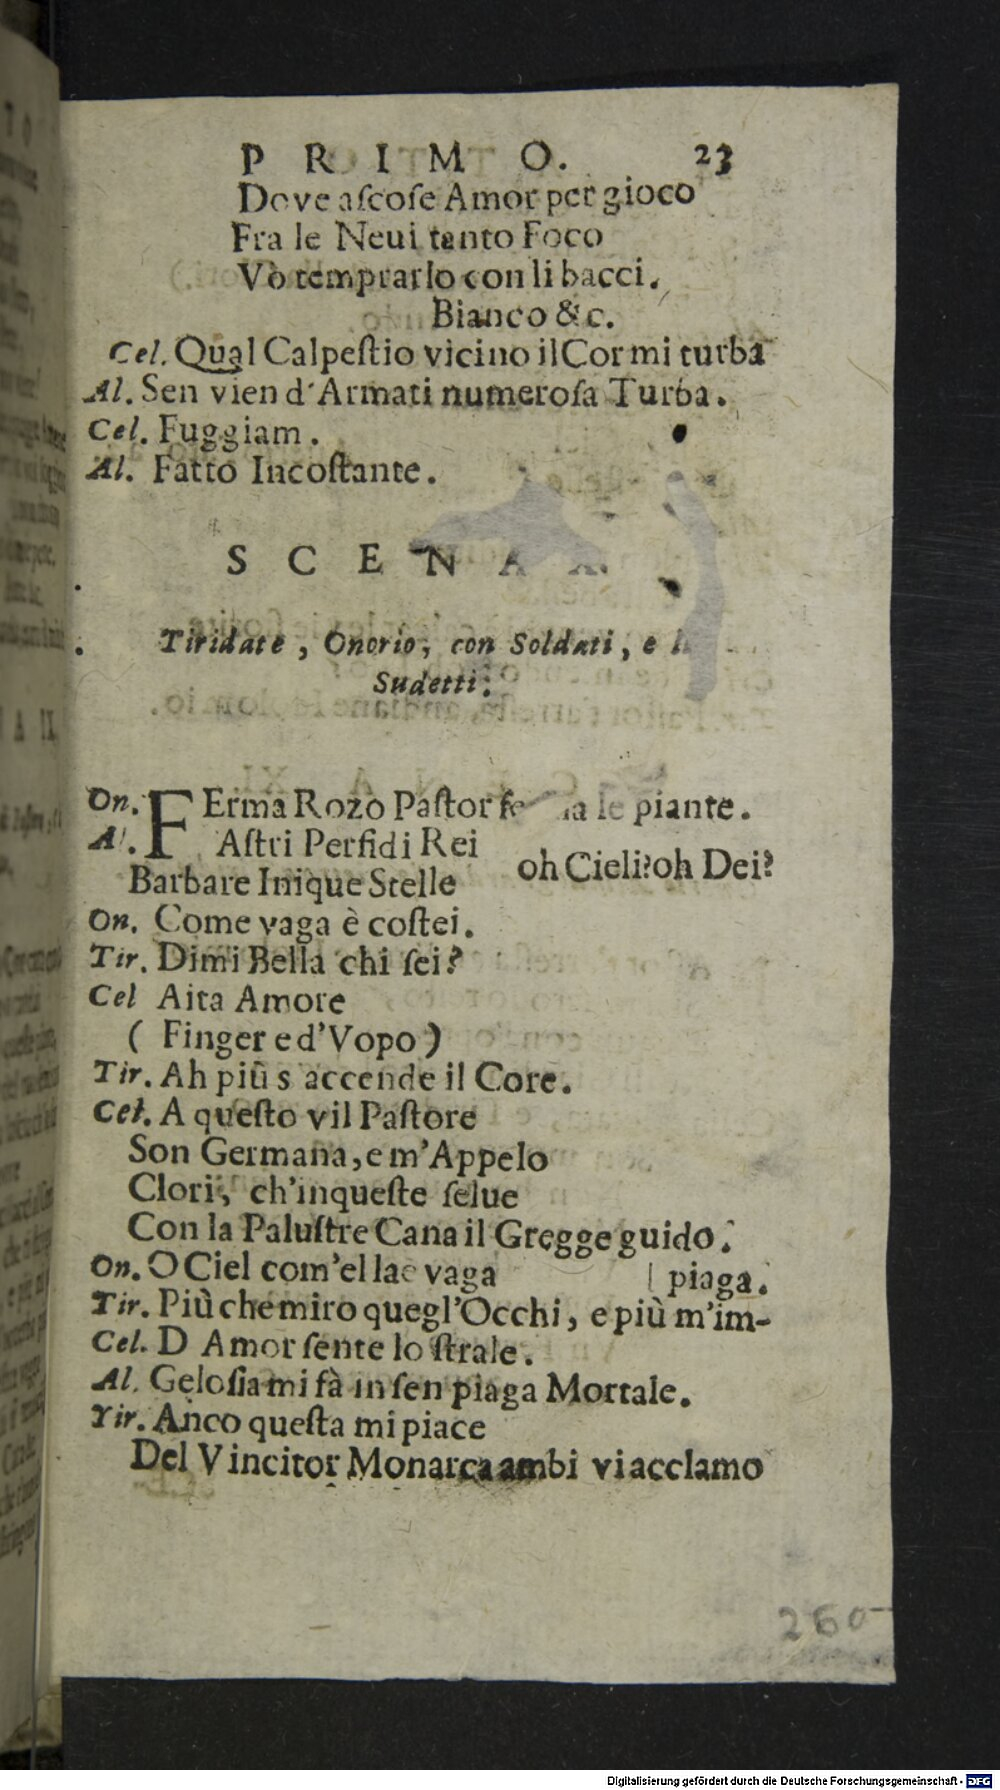 PRIMO. 23
Dove ascose Amor per gioco
Fra le Neui tanto Foco
Vò temprarlo con li bacci.
Bianco &c.
Cel. Qual Calpestio vicino il Cor mi turba
Al. Sen vien d'Armati numerosa Turba.
Cel. Fuggiam.
Al. Fatto Incostante.
SCENA X.
Tiridate, Onorio, con Soldati, e li
Sudetti.
On. FErma Rozo Pastor le piante.
Al. Astri Perfidi Rei
oh Cieli? oh Dei?
Barbare Inique Stelle
On. Come vaga è costei.
Tir. Dimi Bella chi sei?
Cel Aita Amore
( Finger e d'Vopo )
Tir. Ah più s accende il Core.
Cel. A questo vil Pastore
Son Germana, e m'Appelo
Clori, ch'inqueste selue
Con la Palustre Cana il Gregge guido.
On. O Ciel com'ella e vaga | piaga.
Tir. Più che miro quegl'Occhi, e più m'im-
Cel. D Amor sente lo strale.
Al. Gelosia mi fà in sen piaga Mortale.
Tir. Anco questa mi piace
Del Vincitor Monarca ambi vi acclamo
260
Digitalisierung gefördert durch die Deutsche Forschungsgemeinschaft - DFG